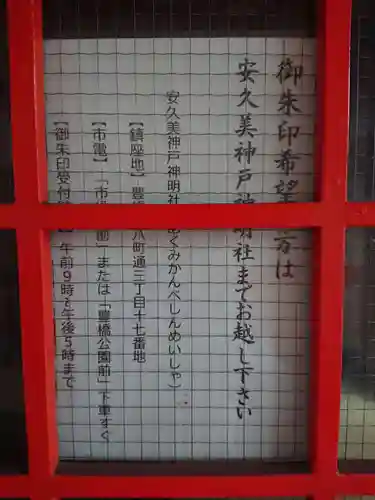 御朱印希望 方は
安久美神戸神明社までお越し下さい
安久美神戸神明社 あくみかんべしんめいしゃ)
【鎮座地】豊 八町通三丁目十七番地
【市電】「市 前」または「豊橋公園前」下車すぐ
【御朱印受付 午前9時~午後5時まで